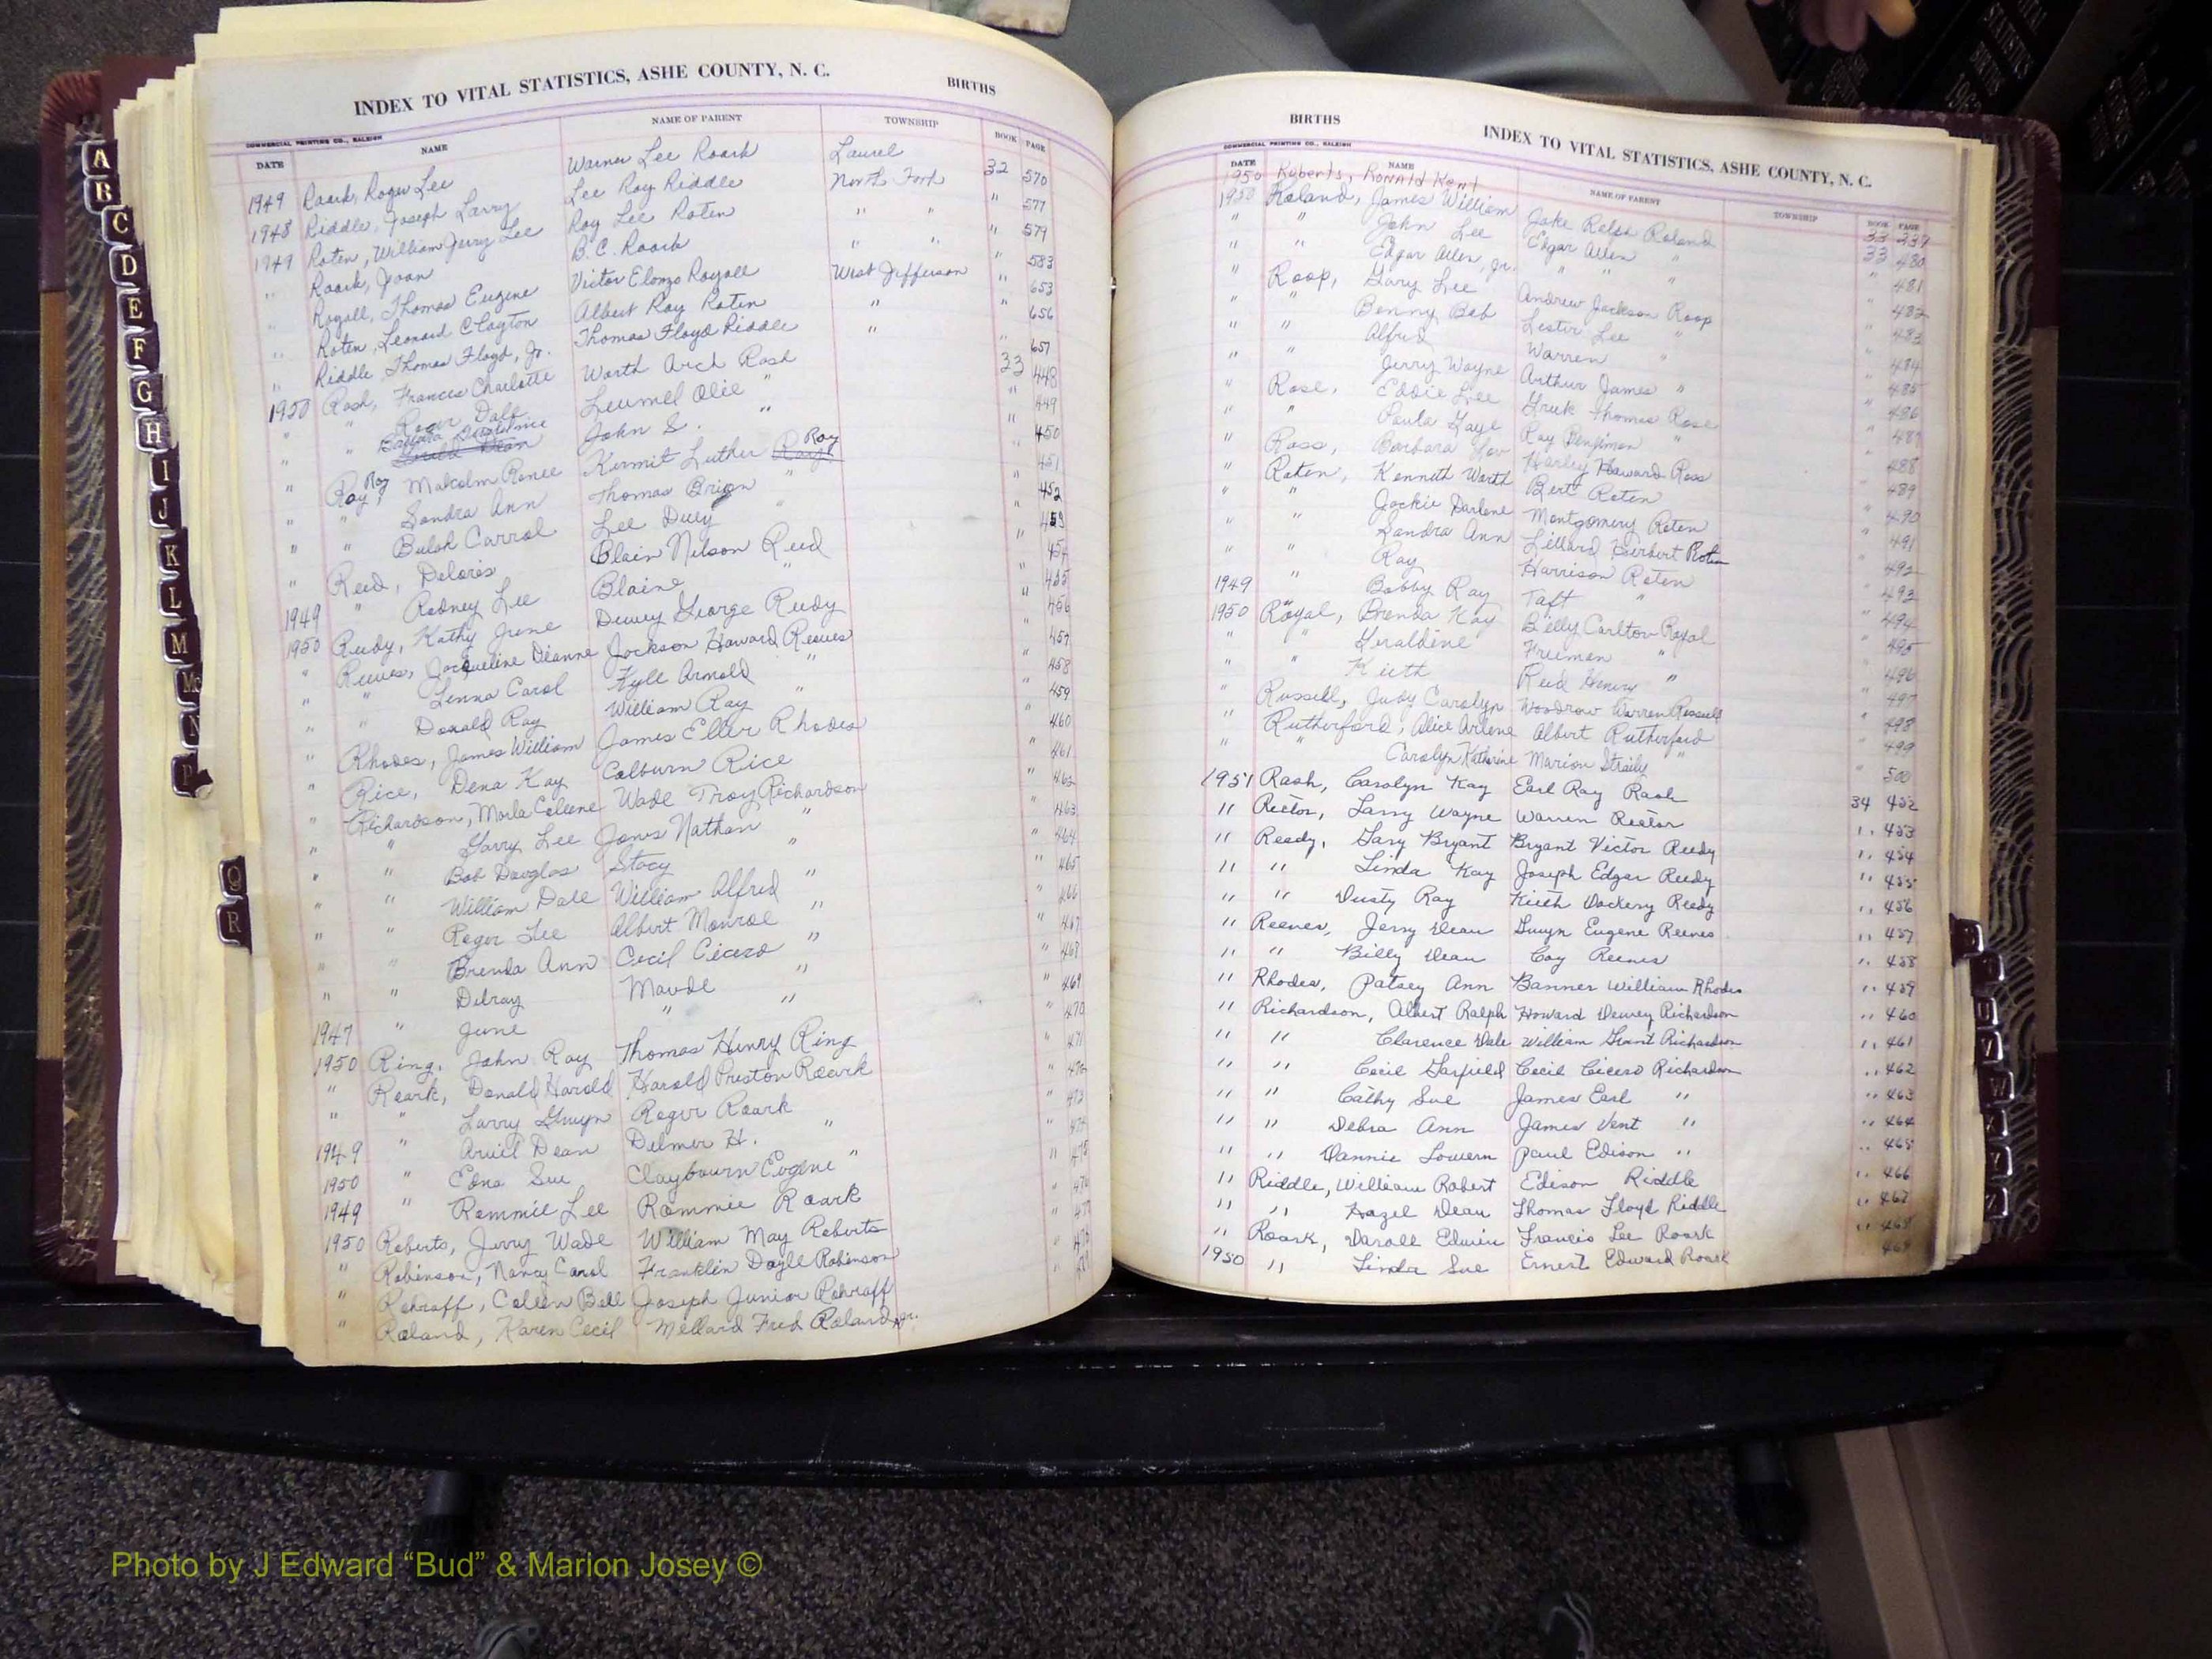 INDEX TO VITAL STATISTICS, ASHE COUNTY, N. C. BIRTHS
COMMERCIAL PRINTING CO., RALEIGH
DATE NAME NAME OF PARENT TOWNSHIP BOOK PAGE
1949 Roark, Roger Lee Warner Lee Roark Laurel 32 570
1948 Riddle, Joseph Larry Lee Roy Riddle North Fork " 577
1949 Roten, William Jerry Lee Roy Lee Roten " " " 579
" Roark, Joan B.C. Roark " " " 583
" Royall, Thomas Eugene Victor Elonzo Royall West Jefferson " 653
" Roten, Leonard Clayton Albert Ray Roten " 656
" Riddle, Thomas Floyd, Jr. Thomas Floyd Riddle " " 657
1950 Rash, Frances Charlotte Worth Arch Rash 33 448
" " Roger Dale Leumel Olie " " 449
" " Barbara John S. " " 450
" Ray, Roy Malcolm Renee Kermit Luther Ray Roy " 451
" " Sandra Ann Thomas Brian " " 452
" " Bulah Carrol Lee Duey " " 453
" Reed, Deloris Blain Nelson Reed " 454
1949 " Rodney Lee Blaine " " 455
1950 Rudy, Kathy June Dewey George Rudy " 456
" Reeves, Jacqueline Dianne Jackson Howard Reeves " 457
" " Lenna Carol Kyle Arnold " " 458
" " Donald Ray William Ray " " 459
" Rhodes, James William James Eller Rhodes " 460
" Rice, Dena Kay Colburn Rice " 461
" Richardson, Marla Coleene Wade Troy Richardson " 462
" " Garry Lee Jones Nathan " " 463
" " Bob Douglas Stacy " " 464
" " William Dale William Alfred " " 465
" " Roger Lee Albert Monroe " " 466
" " Brenda Ann Cecil Cicero " " 467
" " Delray Maude " " 468
1947 " June " " " 469
1950 Ring, John Ray Thomas Henry Ring " 470
" Roark, Donald Harold Harold Preston Roark " 471
" " Larry Gwyn Roger Roark " 472
1949 " Arvil Dean Delmer H. " " 473
1950 " Edna Sue Claybourn Eugene " " 474
1949 " Rommie Lee Rommie Roark " 475
1950 Roberts, Jerry Wade William May Roberts " 476
" Robinson, Nancy Carol Franklin Doyle Robinson " 477
" Rohraff, Coleen Bell Joseph Junior Rohraff " 478
" Roland, Karen Cecil Millard Fred Roland, Jr. "
BIRTHS INDEX TO VITAL STATISTICS, ASHE COUNTY, N. C.
COMMERCIAL PRINTING CO., RALEIGH
DATE NAME NAME OF PARENT TOWNSHIP BOOK PAGE
1950 Roberts, Ronald Kent 33 339
1950 Roland, James William Jake Ralph Roland 33 480
" " John Lee Edgar Allen " " 481
" " Edgar Allen, Jr. " " " " 482
" Roop, Gary Lee Andrew Jackson Roop " 483
" " Benny Bob Lester Lee " " 484
" " Alfred Warren " " 485
" " Jerry Wayne Arthur James " " 486
" Rose, Eddie Lee Thomas Rose " 487
" " Paula Gaye Roy Benjiman " " 488
" Ross, Barbara Harley Howard Ross " 489
" Roten, Kenneth Worth Bert Roten " 490
" " Jackie Darlene Montgomery Roten " 491
" " Sandra Ann Lillard Herbert Roten " 492
" " Ray Harrison Roten " 493
1949 " Bobby Ray Taft " " 494
1950 Royal, Brenda Kay Billy Carlton Royal " 495
" " Geraldine Freeman " " 496
" " Keith Reid Henry " " 497
" Russell, Judy Carolyn Woodrow Warren Russell " 498
" Rutherford, Alice Arlene Albert Rutherford " 499
" " Carolyn Katherine Marion Straily " " 500
1951 Rash, Carolyn Kay Earl Ray Rash 34 452
" Rector, Larry Wayne Warren Rector " 453
" Reedy, Gary Bryant Bryant Victor Reedy " 454
" " Linda Kay Joseph Edgar Reedy " 455
" " Dusty Ray Keith Dockery Reedy " 456
" Reeves, Jerry Dean Gwyn Eugene Reeves " 457
" " Billy Dean Coy Reeves " 458
" Rhodes, Patsey Ann Banner William Rhodes " 459
" Richardson, Albert Ralph Howard Dewey Richardson " 460
" " Clarence Dale William Grant Richardson " 461
" " Cecil Garfield Cecil Cicero Richardson " 462
" " Cathy Sue James Earl " " 463
" " Debra Ann James Vent " " 464
" " Dannie Lowern Paul Edison " " 465
" Riddle, William Robert Edison Riddle " 466
" " Hazel Dean Thomas Floyd Riddle " 467
" Roark, Daroll Edwin Francis Lee Roark " 468
1950 " Linda Sue Ernest Edward Roark 469
A
B
C
D
E
F
G
H
I
J
K
L
M
Mc
N
P
Q
R
U
V
W
X
Y
Z
Photo by J Edward “Bud” & Marion Josey ©